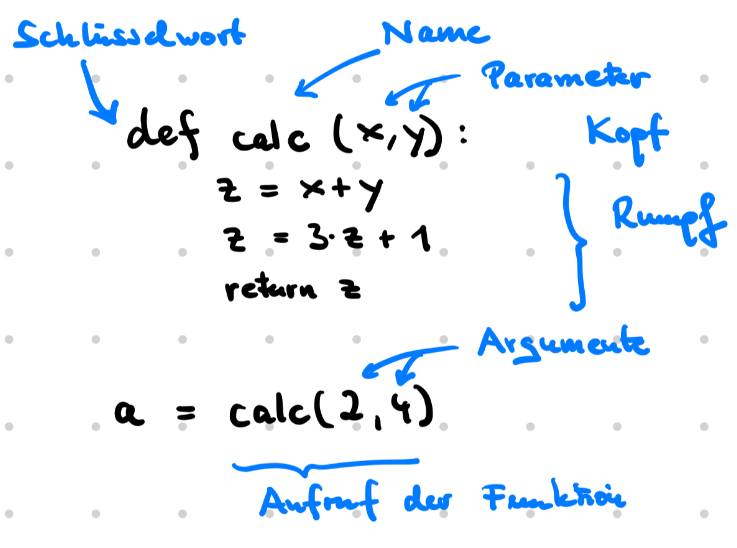 Schlüsselwort Name
Parameter
def calc (x,y): Kopf
z = x+y
z = 3·z + 1 Rumpf
return z
Argumente
a = calc(2,4)
Aufruf der Funktion